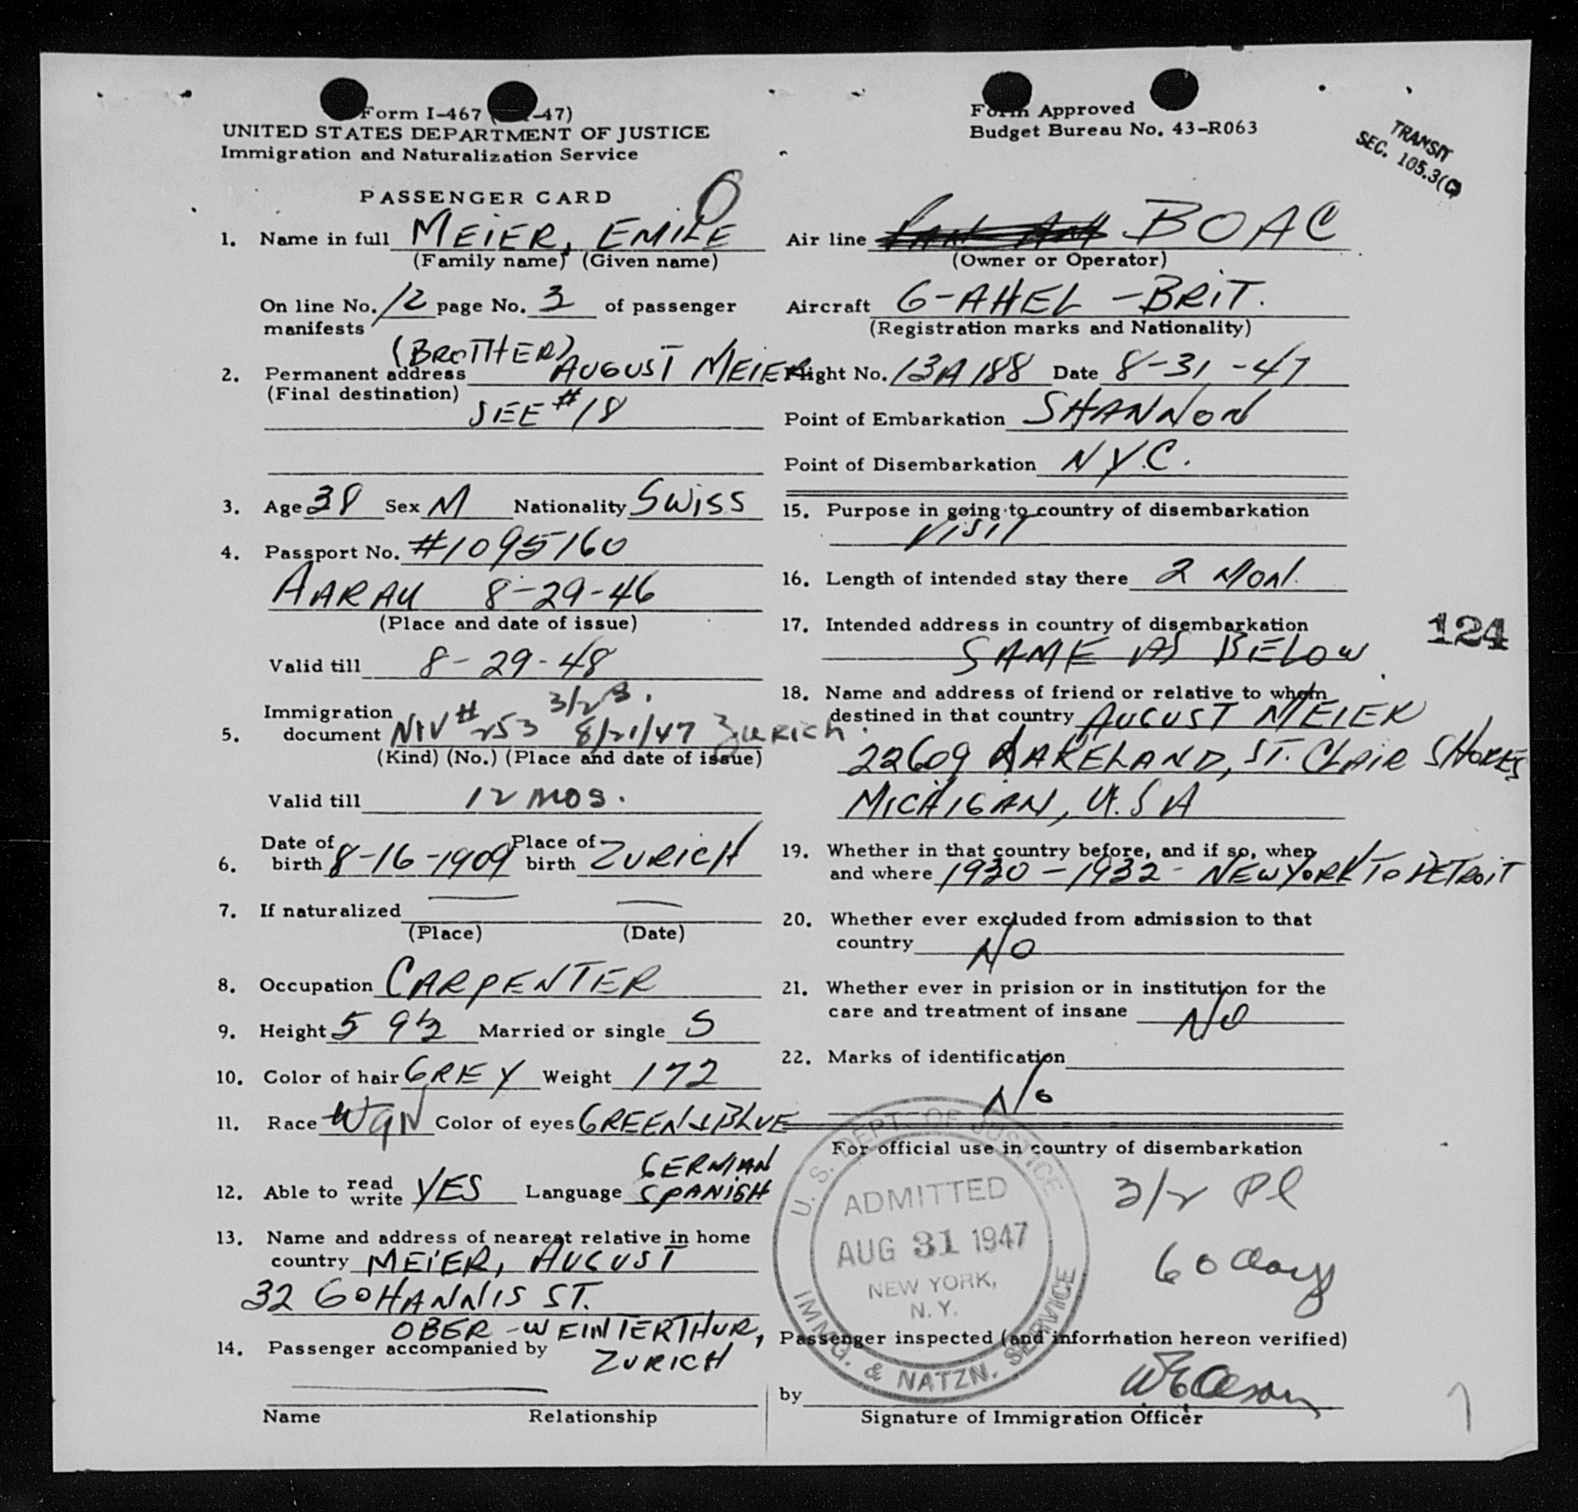 Form I-467 ( -47)
UNITED STATES DEPARTMENT OF JUSTICE
Immigration and Naturalization Service
PASSENGER CARD
O
1. Name in full MEIER, EMILE
(Family name) (Given name)
On line No. 12 page No. 3 of passenger
manifests
(BROTHER)
2. Permanent address AUGUST MEIER
(Final destination)
SEE #18
3. Age 38 Sex M Nationality SWISS
4. Passport No. #1095160
AARAU 8-29-46
(Place and date of issue)
Valid till 8-29-48
3/2 B.
Immigration
5. document NIV # 253 8/21/47 Zurich.
(Kind) (No.) (Place and date of issue)
Valid till 12 mos.
6. Date of birth 8-16-1909 Place of birth ZURICH
7. If naturalized — —
(Place) (Date)
8. Occupation CARPENTER
9. Height 5 9½ Married or single S
10. Color of hair GREY Weight 172
11. Race W Color of eyes GREEN & BLUE
12. Able to read write YES Language GERMAN SPANISH
13. Name and address of nearest relative in home
country MEIER, AUGUST
32 GOHANNIS ST.
OBER-WEINTERTHUR,
ZURICH
14. Passenger accompanied by
Name Relationship
Form Approved
Budget Bureau No. 43-R063
TRANSIT
SEC. 105.3(C)
Air line PAN AM BOAC
(Owner or Operator)
Aircraft G-AHEL - BRIT.
(Registration marks and Nationality)
Flight No. 13A188 Date 8-31-47
Point of Embarkation SHANNON
Point of Disembarkation N.Y.C.
15. Purpose in going to country of disembarkation
VISIT
16. Length of intended stay there 2 MON.
17. Intended address in country of disembarkation
SAME AS BELOW
124
18. Name and address of friend or relative to whom
destined in that country AUGUST MEIER
22609 LAKELAND, ST. CLAIR SHORES
MICHIGAN, U.S.A
19. Whether in that country before, and if so, when
and where 1930-1932 - NEW YORK TO DETROIT
20. Whether ever excluded from admission to that
country NO
21. Whether ever in prision or in institution for the
care and treatment of insane NO
22. Marks of identification
No
For official use in country of disembarkation
U. S. DEPT. OF JUSTICE
ADMITTED
AUG 31 1947
NEW YORK,
N. Y.
IMMG. & NATZN. SERVICE
3/2 Pl
60 days
Passenger inspected (and information hereon verified)
by
Signature of Immigration Officer